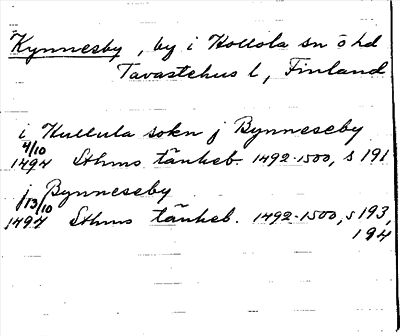 Kynnesby, by i Hollola sn ö hd
Tavastehus l, Finland
i Hullula sokn j Bynneseby
4/10
1494 Sthms tänkeb. 1492-1500, s 191
j Bynneseby
13/10
1494 Sthms tänkeb. 1492-1500, s 193,
194